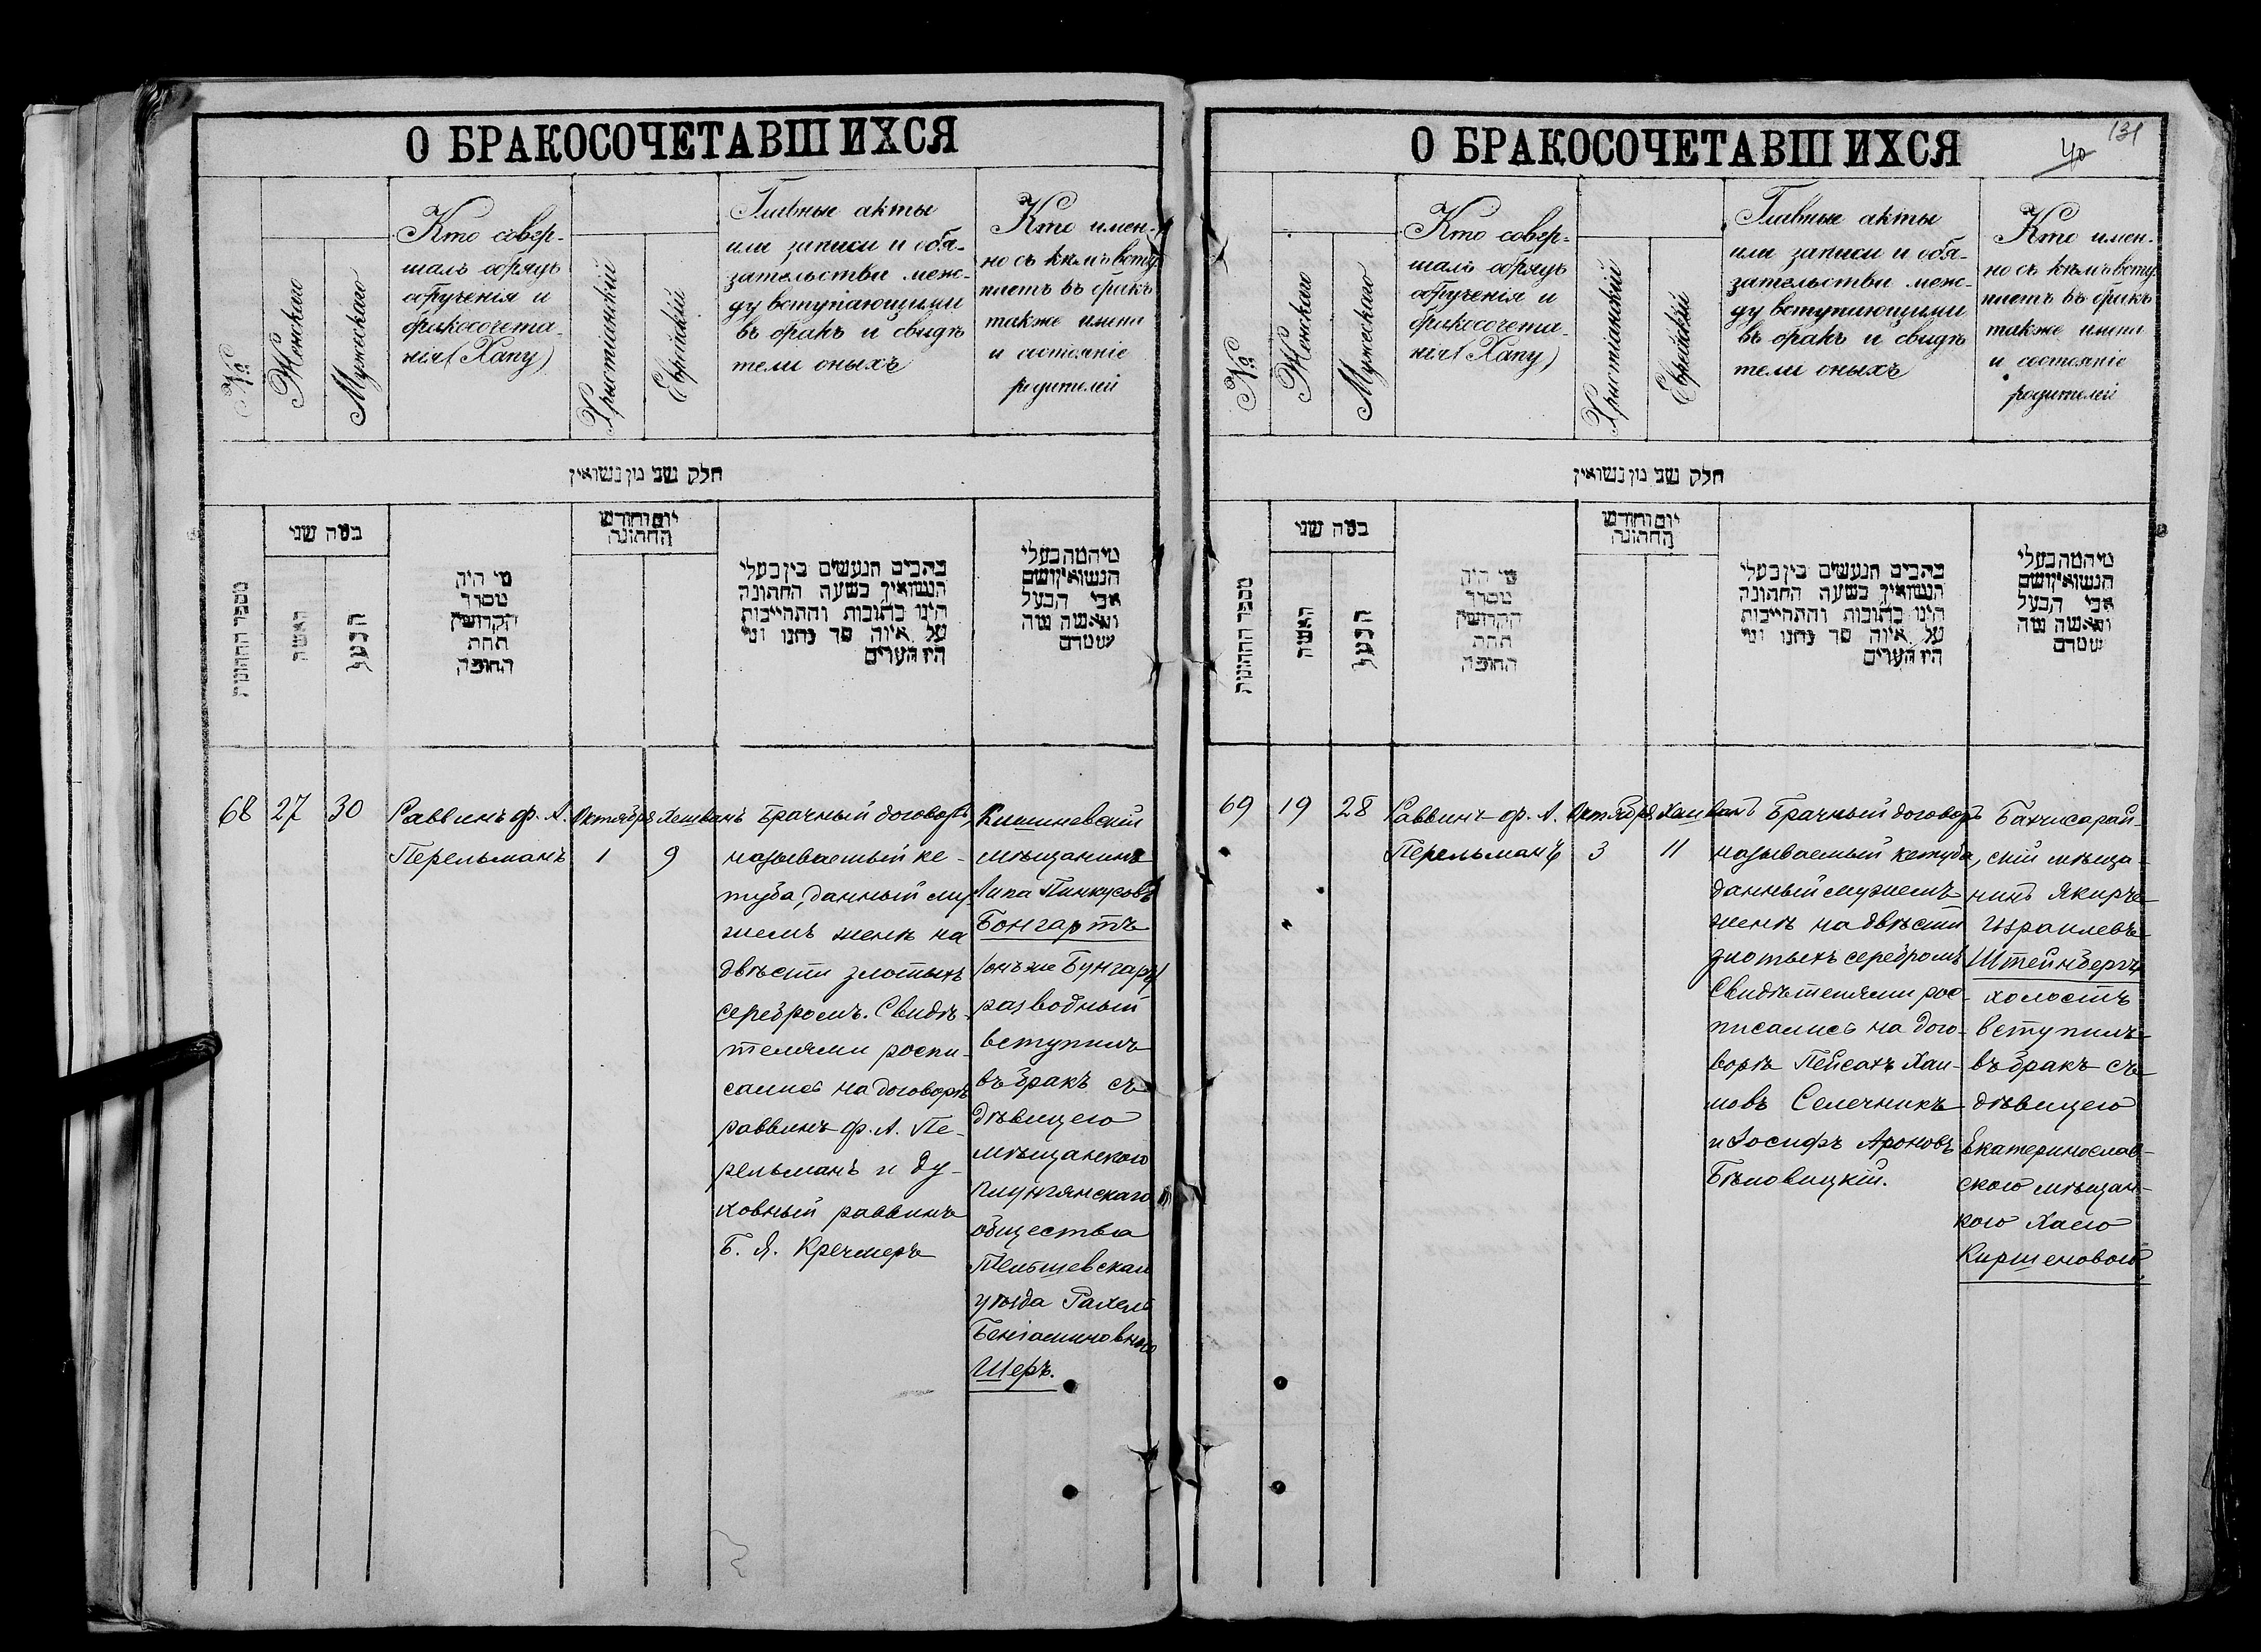 О БРАКОСОЧЕТАВШИХСЯ
№
Женскаго
Мужескаго
Кто совер-
шалъ обрядъ
обрученія и
бракосочета-
нія (Хапу)
Христіанскій
Еврейскій
Главные акты
или записи и обя-
зательства меж-
ду вступающими
въ бракъ и свидѣ
тели оныхъ
Кто имен-
но съ кѣмъ всту
паетъ въ бракъ
также имена
и состояніе
родителей
חלק שני מן נשואין
מספר החתונות
כמה שני
האשה
הבעל
מי היה
מסדר
הקדושין
תחת
החופה
יום וחודש
החתונה
כתבים הנעשים בין בעלי
הנשואין בשעה החתונה
היינו כתובות והתחייבות
על איזה סך נתנו ומי
היו העדים
מי המה בעלי
הנשואין ושם
אבי הבעל
והאשה ומה
שטרם
68
27
30
Раввинъ ф. А.
Перельманъ
Октября
1
Хешванъ
9
Брачный договоръ,
называемый ке-
туба, данный му-
жемъ женѣ на
двѣсти злотыхъ
серебромъ. Свидѣ-
телями роспи-
сались на договорѣ
раввинъ ф. А. Пе-
рельманъ и ду-
ховный раввинъ
Б. Я. Кречмеръ
Кишиневскій
мѣщанинъ
Липа Пинкусовъ
Бонгартъ
/онъ же Бунгардъ/
разводный
вступилъ
въ бракъ съ
дѣвицею
мѣщанкою
Плунгянскаго
общества
Тельшевскаго
уѣзда Рахелью
Беніаминовною
Шеръ.
О БРАКОСОЧЕТАВШИХСЯ
40
131
№
Женскаго
Мужескаго
Кто совер-
шалъ обрядъ
обрученія и
бракосочета-
нія (Хапу)
Христіанскій
Еврейскій
Главные акты
или записи и обя-
зательства меж-
ду вступающими
въ бракъ и свидѣ
тели оныхъ
Кто имен-
но съ кѣмъ всту
паетъ въ бракъ
также имена
и состояніе
родителей
חלק שני מן נשואין
מספר החתונות
כמה שני
האשה
הבעל
מי היה
מסדר
הקדושין
תחת
החופה
יום וחודש
החתונה
כתבים הנעשים בין בעלי
הנשואין בשעה החתונה
היינו כתובות והתחייבות
על איזה סך נתנו ומי
היו העדים
מי המה בעלי
הנשואין ושם
אבי הבעל
והאשה ומה
שטרם
69
19
28
Раввинъ ф. А.
Перельманъ
Октября
3
Хешванъ
11
Брачный договоръ
называемый кетуба,
данный мужемъ
женѣ на двѣсти
злотыхъ серебромъ
Свидѣтелями рос-
писались на дого-
ворѣ Пейсахъ Хаи-
мовъ Селечникъ
и Іосифъ Ароновъ
Бѣловицкій.
Бахчисарай-
скій мѣща-
нинъ Якиръ
Израилевъ
Штейнбергъ
холостъ
вступилъ
въ бракъ съ
дѣвицею
Екатеринослав-
скою мѣщан-
кою Хаею
Киршеновою.